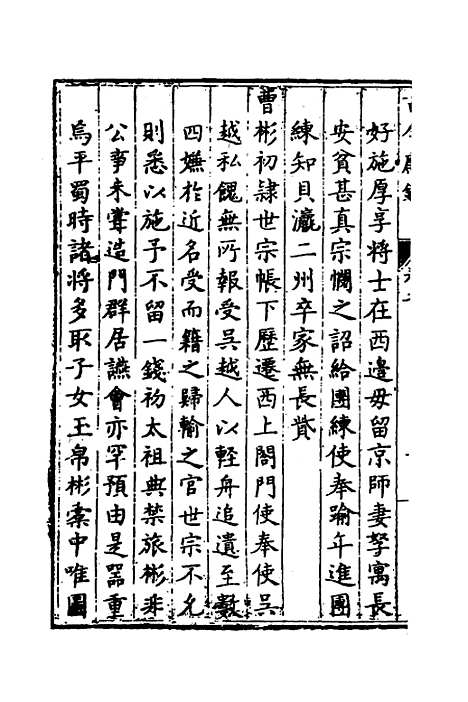 好施厚享將士在西邊毋留京師妻孥寓長
安貧甚真宗憫之詔給團練使奉踰年進團
練知貝瀛二州卒家無長貲
曹彬初隷世宗帳下歷遷西上閤門使奉使吳
越私餽無所報受吳越人以輕舟追遺至數
四嫌於近名受而籍之歸輸之官世宗不允
則悉以施予不留一錢初太祖典禁旅彬非
公事未嘗造門群居讌會亦罕預由是器重
焉平蜀時諸將多取子女玉帛彬橐中唯圖